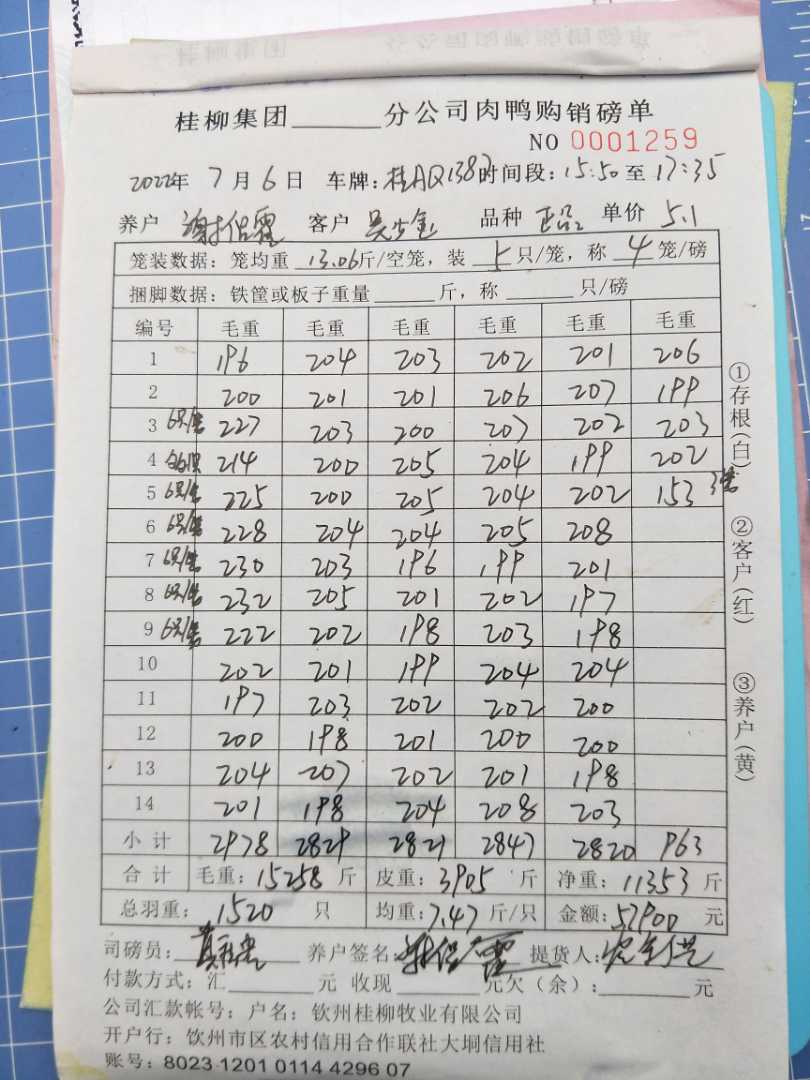 桂柳集团______分公司肉鸭购销磅单
NO 0001259
2022年 7月6日 车牌:桂AQ1387时间段:15:50至17:35
养户 谢保霞 客户 吴少金 品种 单价 5.1
笼装数据:笼均重 13.06斤/空笼,装 5 只/笼,称 4 笼/磅
捆脚数据:铁筐或板子重量______斤,称______只/磅
编号 毛重 毛重 毛重 毛重 毛重 毛重
1 196 204 203 202 201 206
2 200 201 201 206 207 199
3 6只/笼 227 203 200 207 202 203
4 214 200 205 204 199 202
5 6只/笼 225 200 205 204 202 153 3笼
6 6只/笼 228 204 204 205 208
7 6只/笼 230 203 196 199 201
8 6只/笼 232 205 201 202 197
9 6只/笼 222 202 198 203 198
10 202 201 199 204 204
11 197 203 202 202 200
12 200 198 201 200 200
13 204 207 202 201 198
14 201 198 204 208 203
小计 2978 2829 2821 2847 2820 963
合计 毛重:15258斤 皮重:3905斤 净重:11353斤
总羽重:1520 只 均重:7.47斤/只 金额:57900元
①存根(白)
②客户(红)
③养户(黄)
司磅员: 养户签名:谢保霞 提货人:
付款方式:汇______元 收现______元欠(余):______元
公司汇款帐号:户名:钦州桂柳牧业有限公司
开户行:钦州市区农村信用合作联社大垌信用社
账号:8023 1201 0114 4296 07